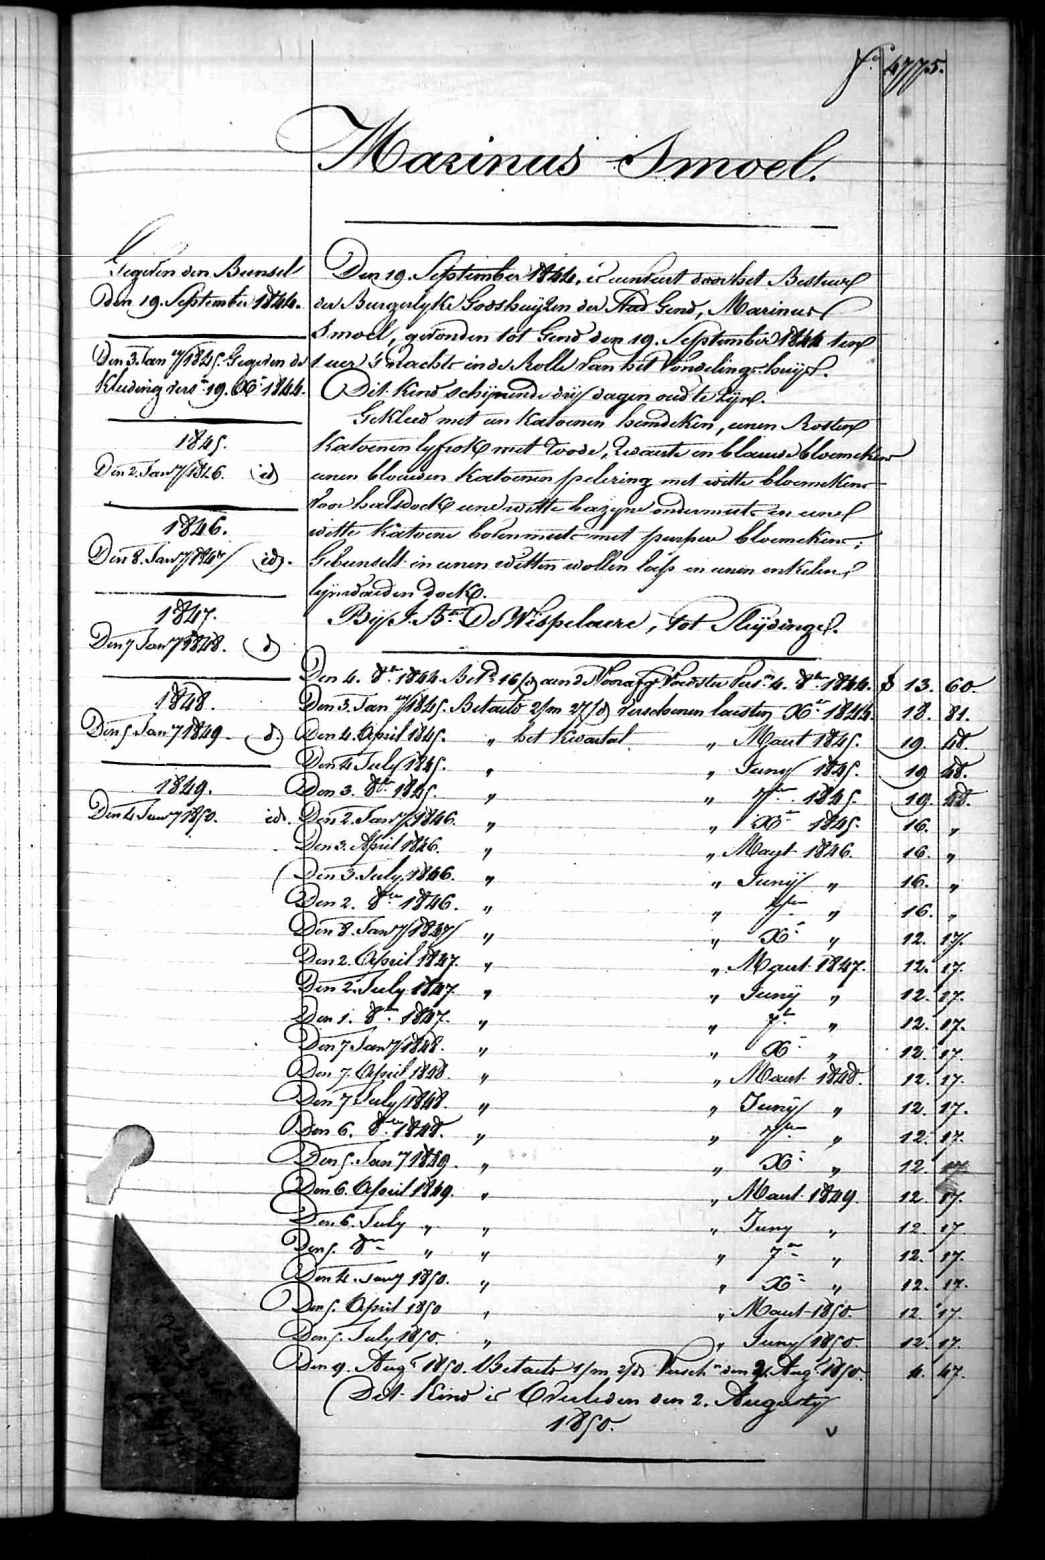 f.° 4775.
Marinus Smoel.
Gegeven den Bunsel
den 19. September 1844.
Den 3. Jan.ry 1845. Gegeven de
Kleding vers.n 19. Xb.r 1844.
1845.
Den 2. Jan.ry 1846. id
1846.
Den 8. Jan.ry 1847 id.
1847.
Den 7 Jan.ry 1848. d
1848.
Den 5 Jan.ry 1849. d
1849.
Den 4 Jan.ry 1850. id.
Den 19. September 1844, is aenveird door het Bestuer
der Burgerlyke Godshuijzen der Stad Gend, Marinus
Smoel, gevonden tot Gend den 19. September 1844 ten
1 uer 's nachts in de Rolle van het Vondelinge-huijs.
Dit kind schijnende drij dagen oud te zijn.
Gekleed met een katoenen hemdeken, eenen Rosten
katoenen lyfrok met roode, zwarte en blauwe bloemekens
eenen blouwen katoenen pelering met witte bloemekens
voor halsdoek eene witte bazijne ondermuts en eene
witte katoene bovenmuts met purper bloemekens;
Gebunselt in eenen witten wollen laps en eenen enkelen
lijnwaeden doek.
Bij J. B.te De Wispelaere, tot Sleijdinge.
Den 4. 8.br 1844. Bet.d 16/d aen d' Voorafg. Voedster vers.n 4. 8.br 1844. 13. 60.
Den 3. Jan.ry 1845. Betaeld 2/m 27/d verschenen laesten Xb.r 1844. 18. 81.
Den 4. April 1845. " het Kwartael " Maert 1845. 19. 48.
Den 4 July 1845. " " Juny 1845. 19. 48.
Den 3. 8.br 1845. " " 7.ber 1845. 19. 48.
Den 2. Jan.ry 1846. " " Xb.r 1845. 16. "
Den 3. April 1846. " " Maert 1846. 16. "
Den 3 July 1846. " " Junij " 16. "
Den 2. 8.bre 1846. " " 7.ber " 16. "
Den 8. Jan.ry 1847 " " Xb.r " 12. 17.
Den 2. April 1847. " " Maert 1847. 12. 17.
Den 2. July 1847. " " Junij " 12. 17.
Den 1. 8.br 1847. " " 7.br " 12. 17.
Den 7 Jan.ry 1848. " " Xb.r " 12. 17.
Den 7. April 1848. " " Maert 1848. 12. 17.
Den 7 July 1848. " " Junij " 12. 17.
Den 6. 8.bre 1848. " " 7.ber " 12. 17.
Den 5. Jan.ry 1849. " " Xb.r " 12. 17.
Den 6. April 1849. " " Maert 1849. 12. 17.
Den 6. July " " " Juny " 12. 17
Den 5. 8.bre " " " 7.bre " 12. 17.
Den 4. Jan.ry 1850. " " Xb.r " 12. 17.
Den 5. April 1850 " " Maert 1850. 12. 17.
Den 5. July 1850. " " Juny 1850. 12. 17.
Den 9. Aug.t 1850. Betaeld 1/m 2/d Versch.n den 2. Aug.t 1850. 4. 47.
Dit Kind is Overleden den 2. Augusty
1850.
v